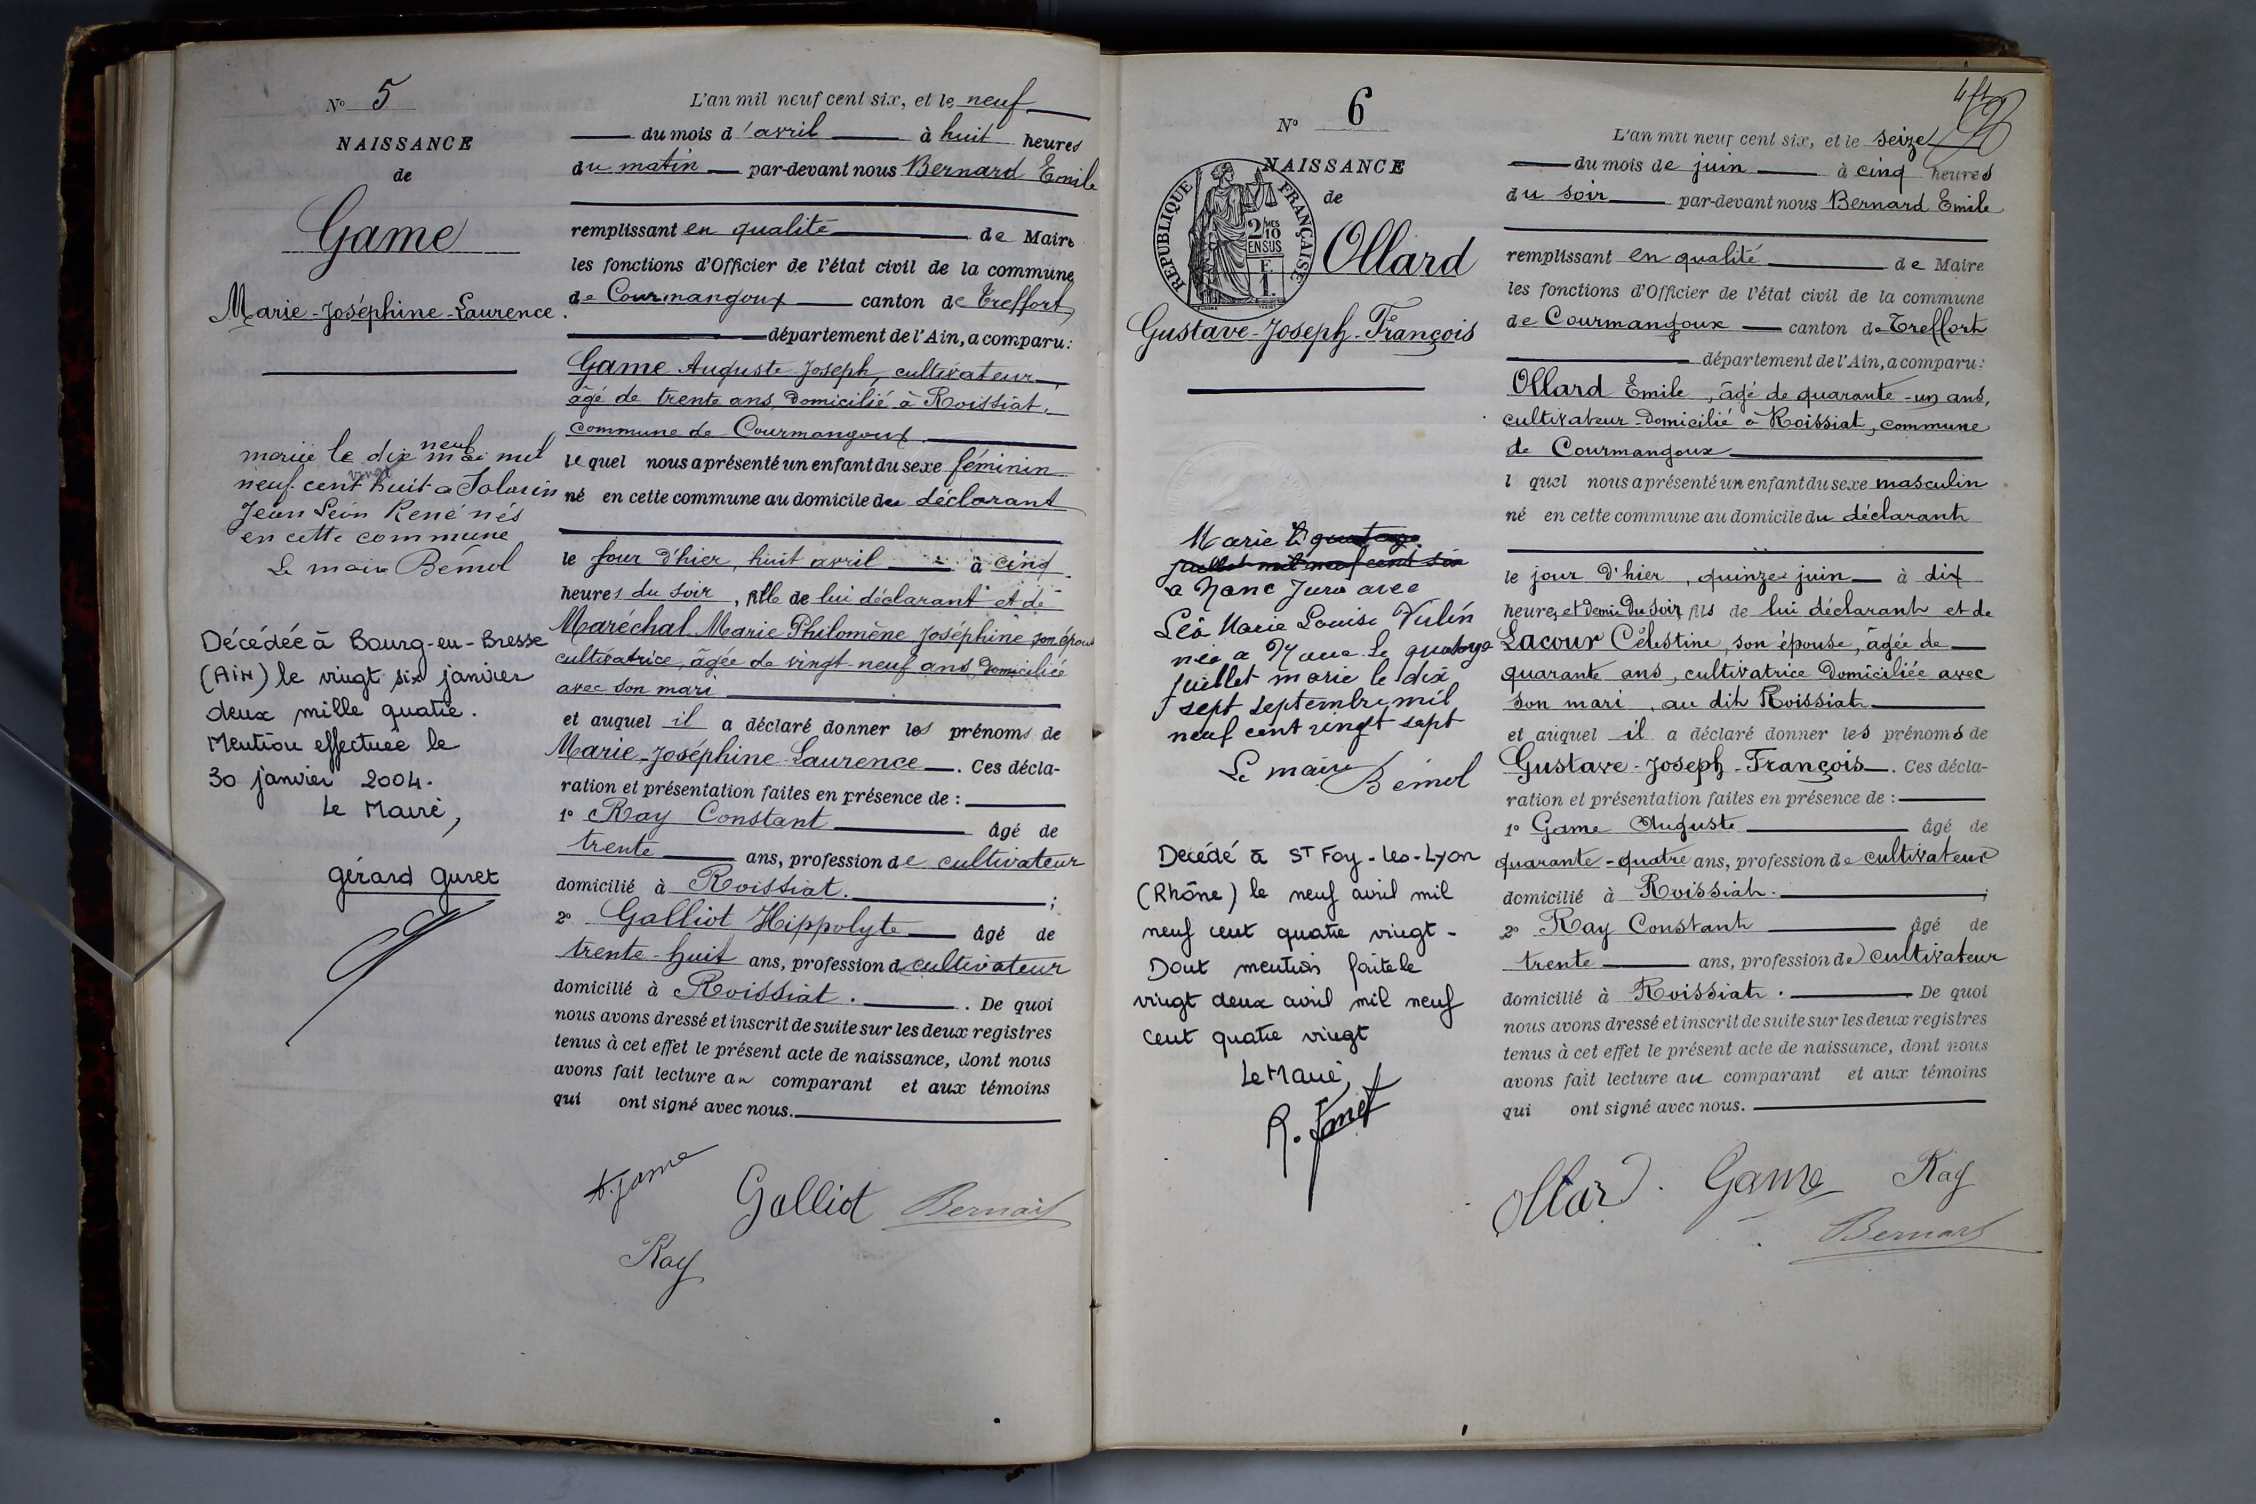 Nº 5
NAISSANCE
de
Game
Marie-Joséphine-Laurence.
neuf
mariée le dix mai mil
vingt
neuf cent huit a Jolarin
Jean Léon René nés
en cette commune
Le maire Bémol
Décédée à Bourg-en-Bresse
(Ain) le vingt six janvier
deux mille quatre.
Mention effectuée le
30 janvier 2004.
Le Maire,
Gérard Guret
L'an mil neuf cent six, et le neuf
du mois d'avril à huit heures
du matin par-devant nous Bernard Emile
remplissant en qualité de Maire
les fonctions d'Officier de l'état civil de la commune
de Courmangoux canton de Treffort
département de l'Ain, a comparu:
Game Auguste Joseph, cultivateur,
âgé de trente ans, Domicilié à Roissiat,
commune de Courmangoux.
lequel nous a présenté un enfant du sexe féminin
né en cette commune au domicile du déclarant
le jour d'hier, huit avril à cinq
heures du soir, fille de lui déclarant et de
Maréchal Marie Philomène Joséphine son épouse
cultivatrice, âgée de vingt-neuf ans, Domiciliée
avec son mari
et auquel il a déclaré donner les prénoms de
Marie-Joséphine-Laurence. Ces décla-
ration et présentation faites en présence de :
1º Ray Constant âgé de
trente ans, profession de cultivateur
domicilié à Roissiat. ;
2º Galliot Hippolyte âgé de
trente-huit ans, profession de cultivateur
domicilié à Roissiat. . De quoi
nous avons dressé et inscrit de suite sur les deux registres
tenus à cet effet le présent acte de naissance, dont nous
avons fait lecture au comparant et aux témoins
qui ont signé avec nous.
A. Game
Galliot
Bernard
Ray
Nº 6
NAISSANCE
de
REPUBLIQUE FRANÇAISE
2/10
EN SUS
F.
1.
Ollard
Gustave-Joseph-François
Marie le quatorze
juillet mil neuf cent six
a Nanc Jura avec
Léa Marie Louise Vulin
née a Nanc le quatorze
juillet marie le dix
sept septembre mil
neuf cent vingt sept
Le maire Bémol
Décédé à St Foy-les-Lyon
(Rhône) le neuf avril mil
neuf cent quatre vingt-
Dont mention faite le
vingt deux avril mil neuf
cent quatre vingt
Le Maire,
L'an mil neuf cent six, et le seize
du mois de juin à cinq heures
du soir par-devant nous Bernard Emile
remplissant en qualité de Maire
les fonctions d'Officier de l'état civil de la commune
de Courmangoux canton de Treffort
département de l'Ain, a comparu:
Ollard Emile, âgé de quarante-un ans,
cultivateur Domicilié à Roissiat, commune
de Courmangoux
l quel nous a présenté un enfant du sexe masculin
né en cette commune au domicile du déclarant
le jour d'hier, quinze juin à dix
heures et demie du soir, fils de lui déclarant et de
Lacour Célestine, son épouse, âgée de
quarante ans, cultivatrice Domiciliée avec
son mari, au dit Roissiat
et auquel il a déclaré donner les prénoms de
Gustave-Joseph-François. Ces décla-
ration et présentation faites en présence de :
1º Game Auguste âgé de
quarante-quatre ans, profession de cultivateur
domicilié à Roissiat. ;
2º Ray Constant âgé de
trente ans, profession de cultivateur
domicilié à Roissiat. De quoi
nous avons dressé et inscrit de suite sur les deux registres
tenus à cet effet le présent acte de naissance, dont nous
avons fait lecture au comparant et aux témoins
qui ont signé avec nous.
Ollard. Game Ray
Bernard